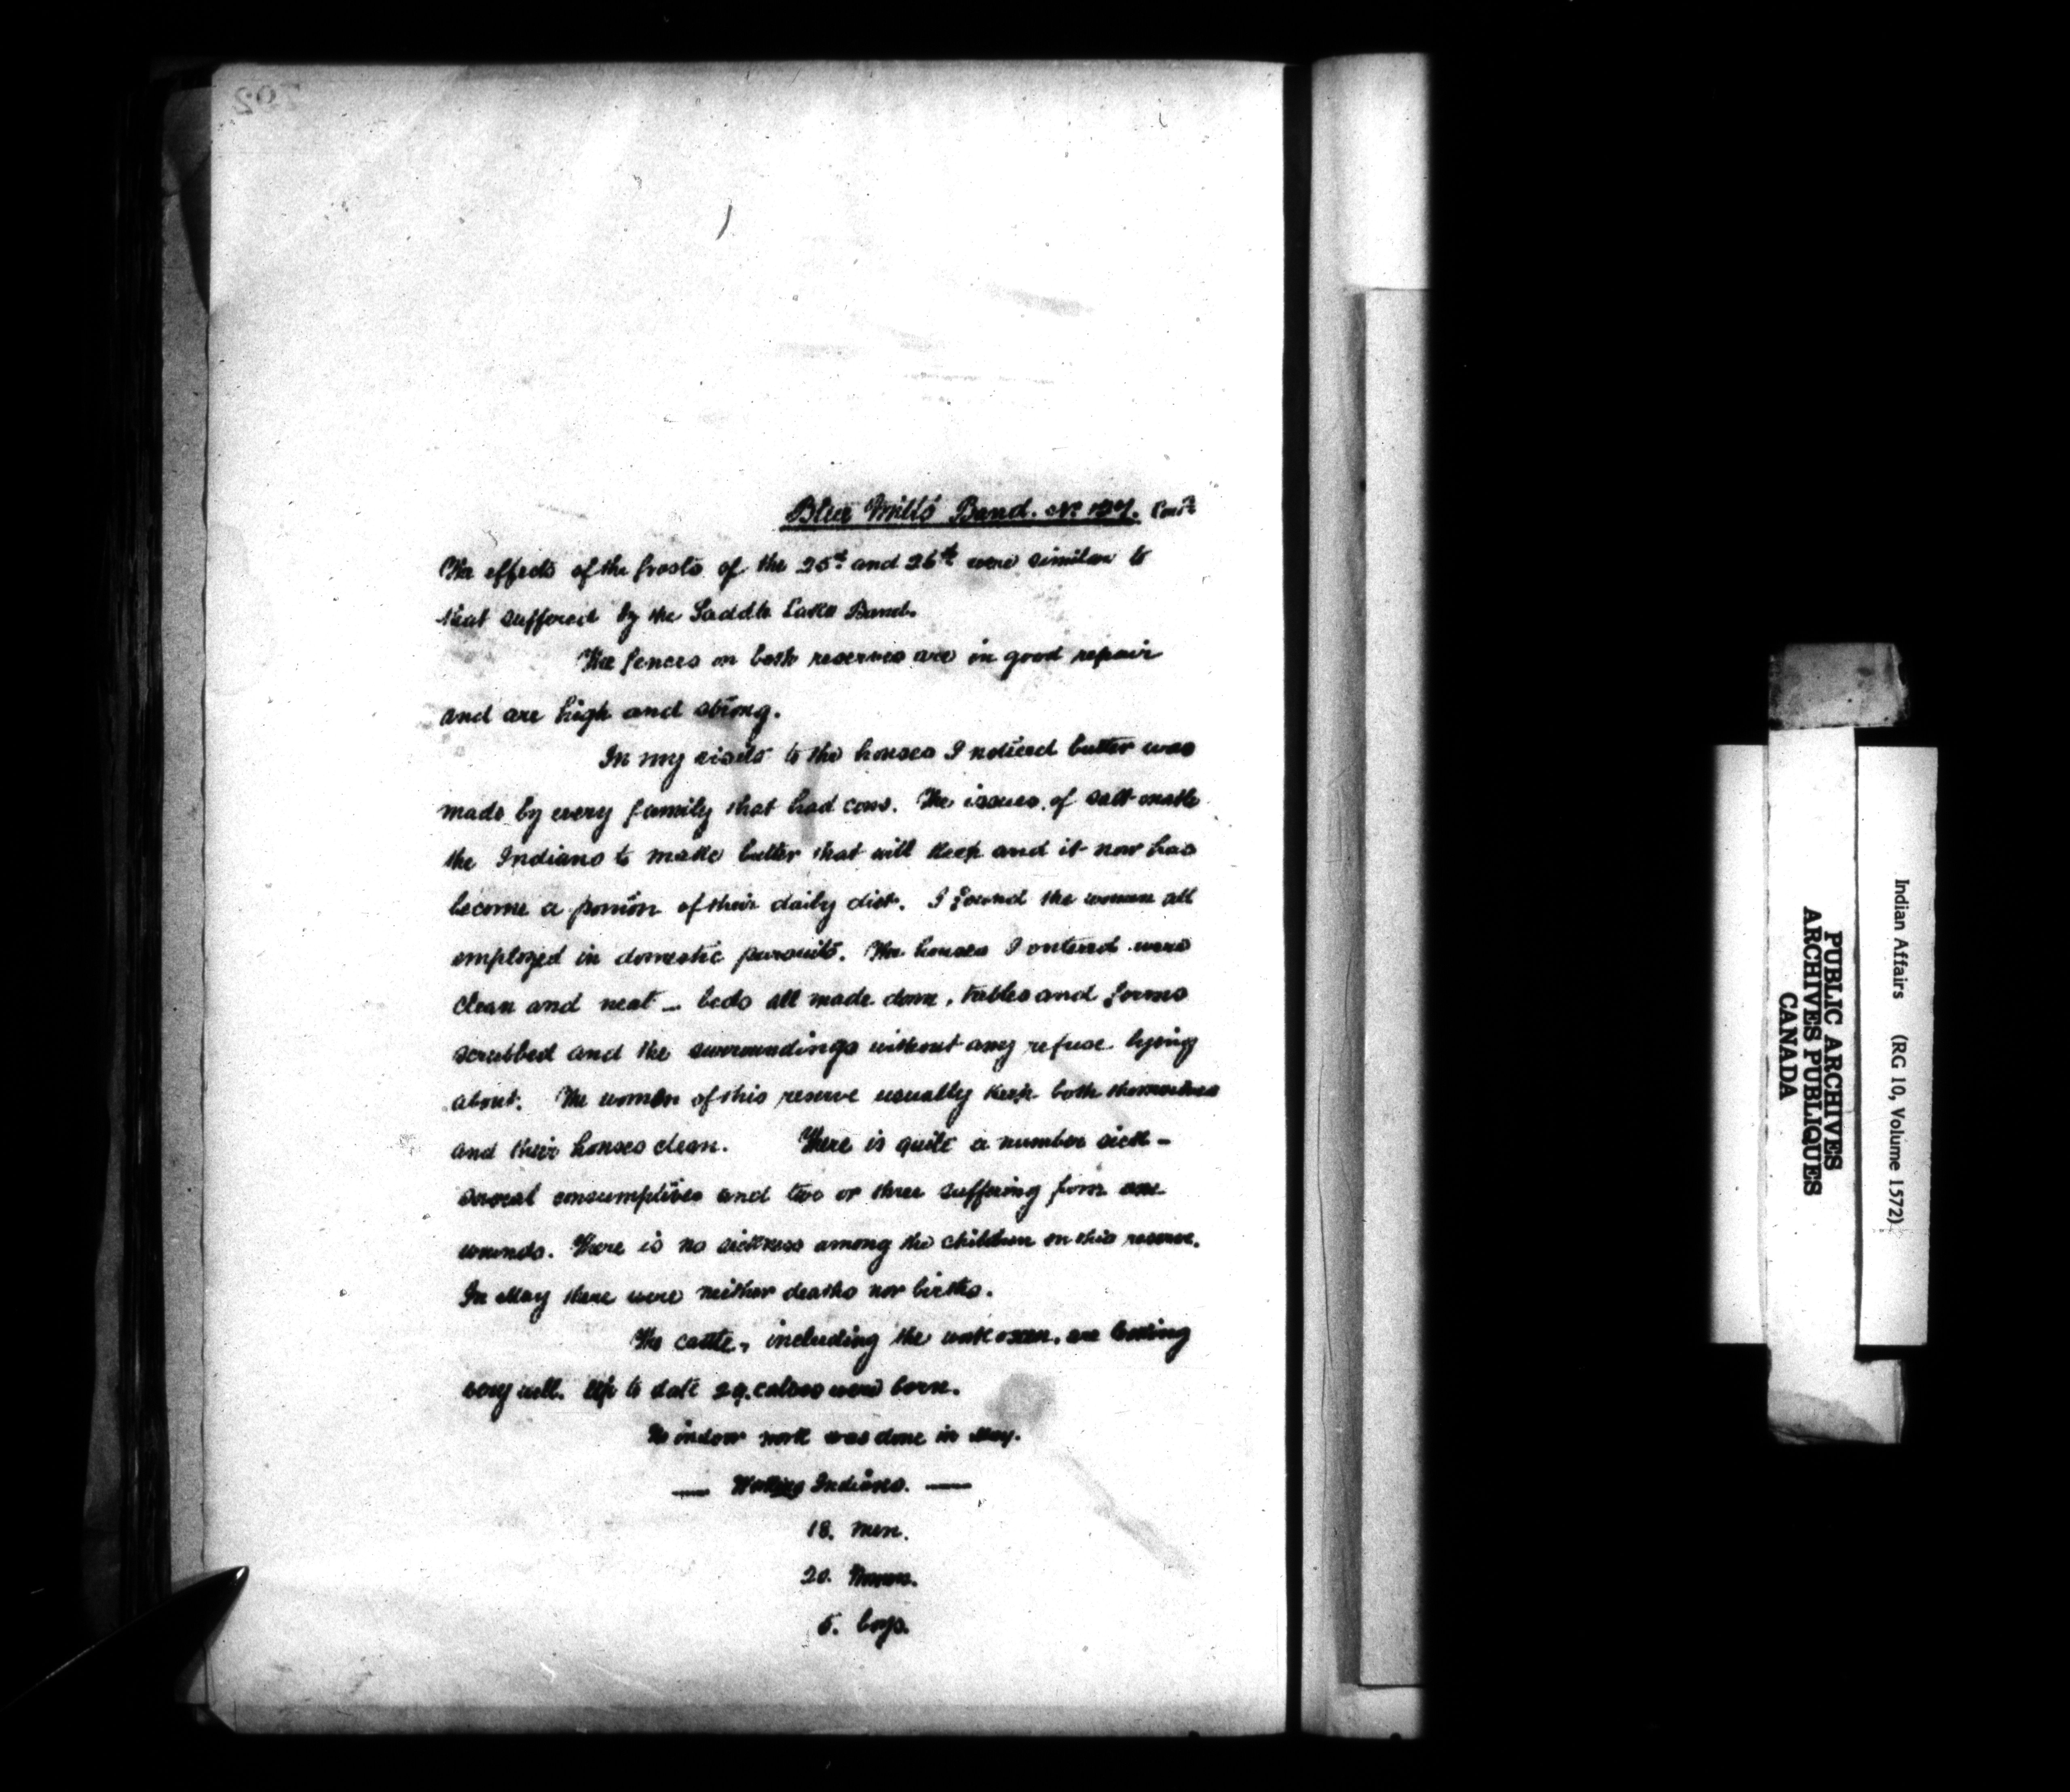 Blue Quill's Band. No 127. Cont'd
The effects of the frosts of the 25th and 26th were similar to
that suffered by the Saddle Lake Band.
The fences on both reserves are in good repair
and are high and strong.
In my visits to the houses I noticed butter was
made by every family that had cows. The issues of salt enable
the Indians to make butter that will keep and it now has
become a portion of their daily diet. I found the women all
employed in domestic pursuits. The houses I entered were
clean and neat – beds all made down, tables and forms
scrubbed and the surroundings without any refuse lying
about. The women of this reserve usually keep both themselves
and their houses clean. There is quite a number sick –
several consumptives and two or three suffering from
wounds. There is no sickness among the children on this reserve.
In May there were neither deaths nor births.
The cattle, including the work oxen, are looking
very well. Up to date 29. calves were born.
No indoor work was done in May.
— Working Indians. —
18. men.
20. Women.
5. boys.
Indian Affairs (RG 10, Volume 1572)
PUBLIC ARCHIVES
ARCHIVES PUBLIQUES
CANADA